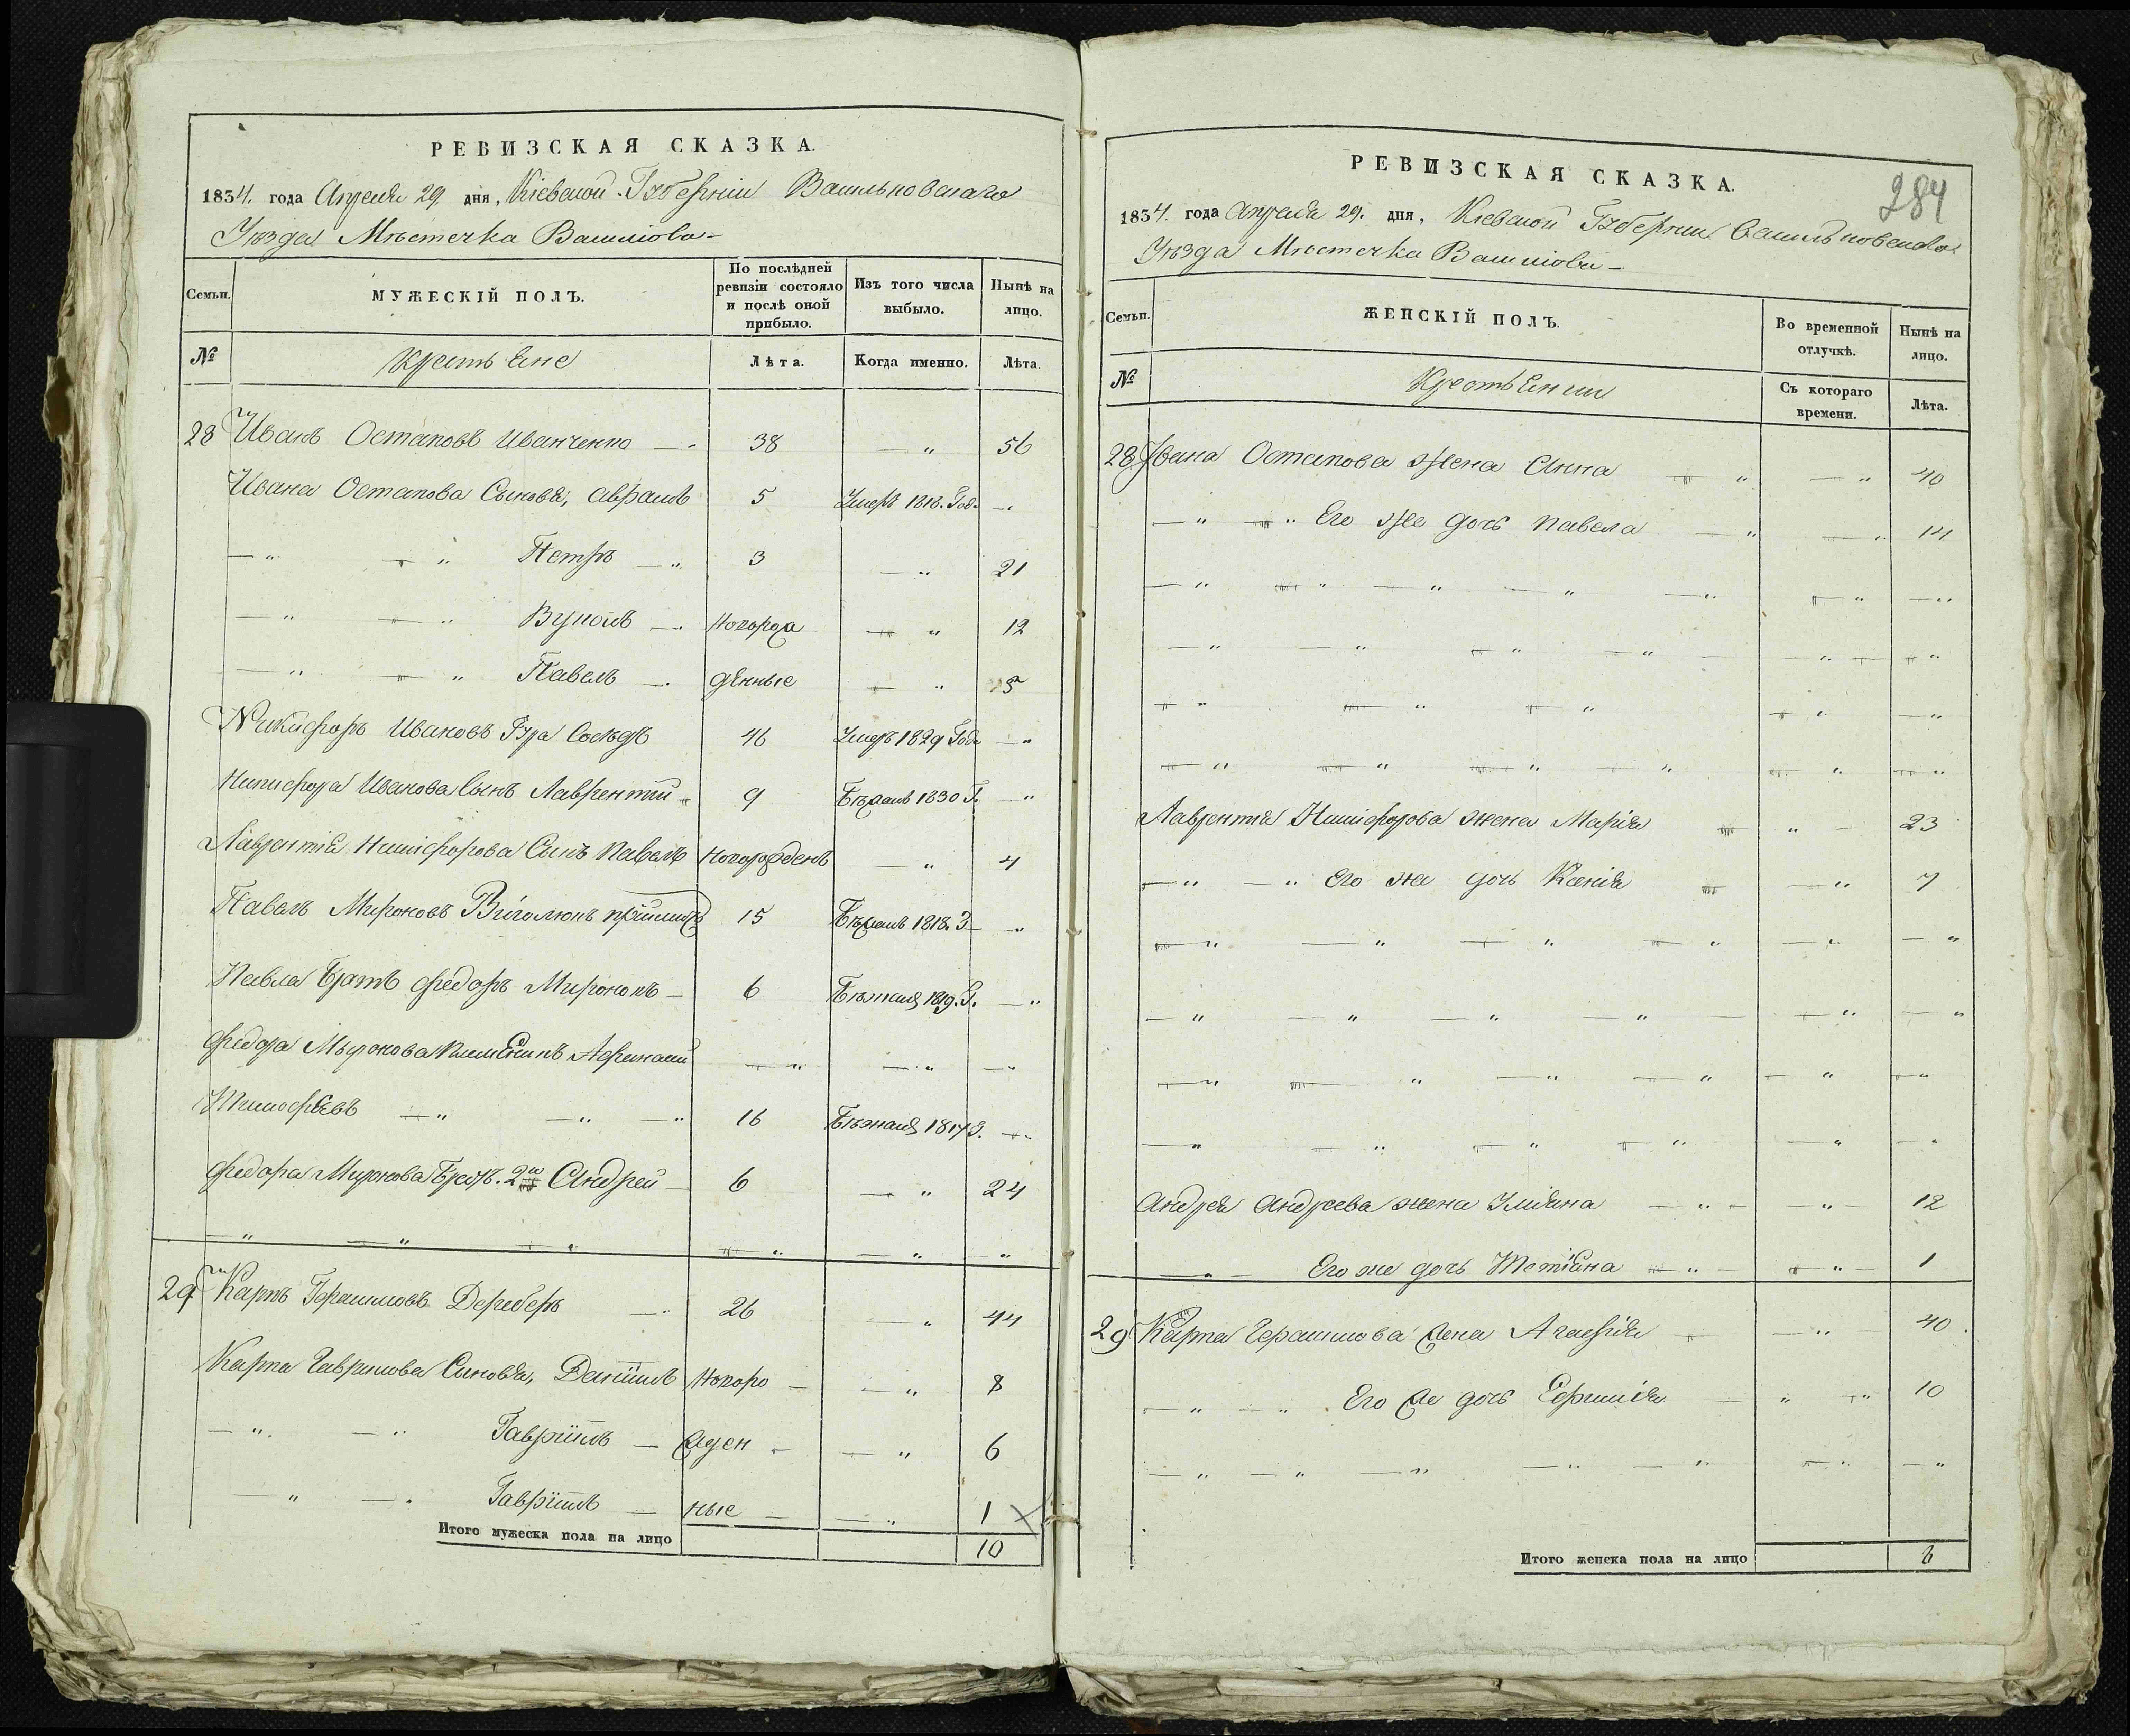 РЕВИЗСКАЯ СКАЗКА.
1834. года Апреля 29 дня, Кіевской Губерніи Васильковскаго
Уезда Мѣстечка
Семьи.
МУЖЕСКІЙ ПОЛЪ.
По послѣдней ревизіи состояло и послѣ оной прибыло.
Изъ того числа выбыло.
Нынѣ на лицо.
№
Крестьяне
Лѣта.
Когда именно.
Лѣта.
28 Иванъ Остаповъ Иванченко 38 — " 56
Ивана Остапова Сыновья, Авраамъ 5 Умеръ 1818. Год. — "
— " — " Петръ — " 3 — " 21
— " — " — " Новорож — " 12
— " — " Павелъ — " денные — " 5
Никифоръ Ивановъ Сосѣдъ 46 Умеръ 1829 Года — "
Никифора Иванова Сынъ Лаврентій 9 Бѣжалъ 1830 Г. — "
Лаврентія Никифорова Сынъ Павелъ Новорожденъ — " 4
Павелъ Мироновъ 15 Бѣжалъ 1818. Г. — "
Павла Братъ Федоръ Мироновъ — 6 Бѣжалъ 1819. Г. — "
Федора Миронова Племяникъ Афанасій — " — " — "
Тимофѣевъ — " — " — " 16 Бѣжалъ 1817 Г. — "
Федора Миронова Братъ. 2й Андрей — 6 — " 24
— " — " — " — " — " — "
29 Карпъ Герасимовъ 26 — " 44
Карпа Сыновья, Даніилъ Новоро — — " 8
— " — " Гавріилъ — жден — — " 6
— " — " Гавріилъ — ные — — " 1
Итого мужеска пола на лицо 10
РЕВИЗСКАЯ СКАЗКА.
284
1834. года Апреля 29. дня, Кіевской Губернии Васильковскаго
Уезда Мѣстечка
Семьи.
ЖЕНСКІЙ ПОЛЪ.
Во временной отлучкѣ.
Нынѣ на лицо.
№
Крестьянки
Съ котораго времени.
Лѣта.
28 Ивана Остапова жена Анна — " — " 40
— " — " Его же дочь Павела — " — " 14
— " — " — " — " — " — " — "
— " — " — " — " — " — "
— " — " — " — " — "
— " — " — " — " — " — "
Лаврентія Никифорова жена Марія — " 23
— " — " Его же дочь Ксенія — " 7
— " — " — " — " — " — "
— " — " — " — " — " — "
— " — " — " — " — " — "
— " — " — " — " — " — "
Андрея Андреева жена Уліяна — " — — " — 12
— " — Его же дочь Тетіяна — " — — " — 1
29 Карпа Герасимова жена Агафія — — " 40
— " — " Его же дочь Ефимія — " — " 10
— " — " — " — " — " — " — "
Итого женска пола на лицо 8